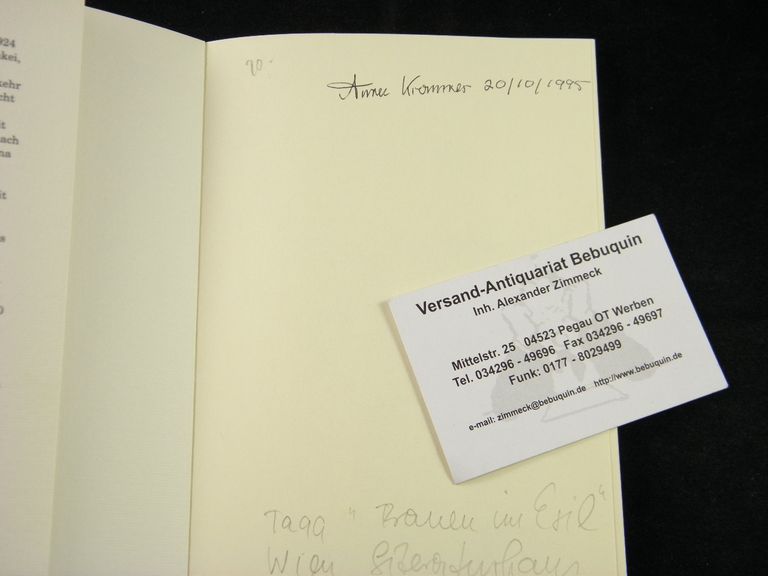 924
kei,
kehr
cht
it
ach
na
it
s
90.-
Anna Krommer 20/10/1995
Versand-Antiquariat Bebuquin
Inh. Alexander Zimmeck
Mittelstr. 25 04523 Pegau OT Werben
Tel. 034296 - 49696 Fax 034296 - 49697
Funk: 0177 - 8029499
e-mail: zimmeck@bebuquin.de http://www.bebuquin.de
Tagg "Frauen im Exil"
Wien Literaturhaus